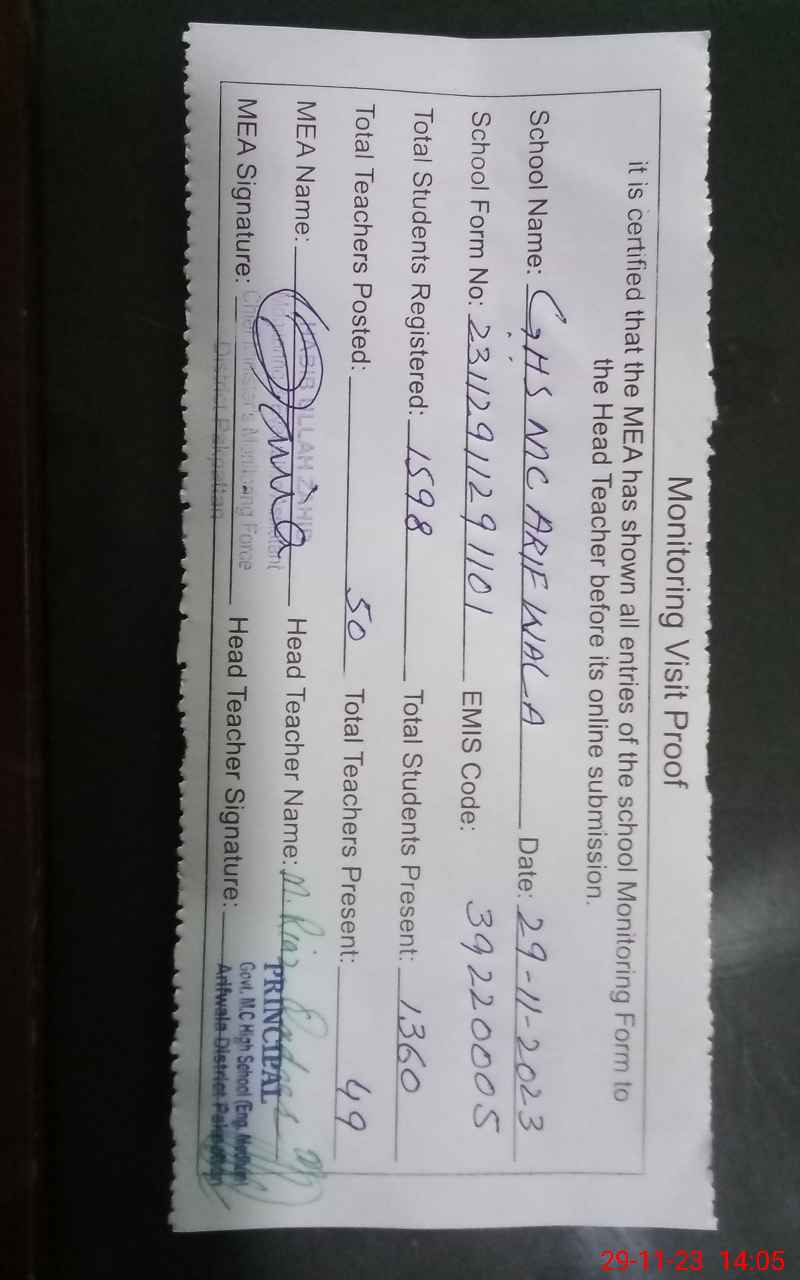 Monitoring Visit Proof
it is certified that the MEA has shown all entries of the school Monitoring Form to
the Head Teacher before its online submission.
School Name: GHS MC ARIFWALA Date: 29-11-2023
School Form No: 2311291129 1101 EMIS Code: 39220005
Total Students Registered: 1598 Total Students Present: 1360
Total Teachers Posted: 50 Total Teachers Present: 49
MEA Name: Head Teacher Name: M. Riaz
MEA Signature: Head Teacher Signature:
HABIB ULLAH ZAHID
Chief Minister's Monitoring Force
District Pakpattan
PRINCIPAL
Govt. M.C High School (Eng. Medium)
Arifwala District Pakpattan
29-11-23 14:05